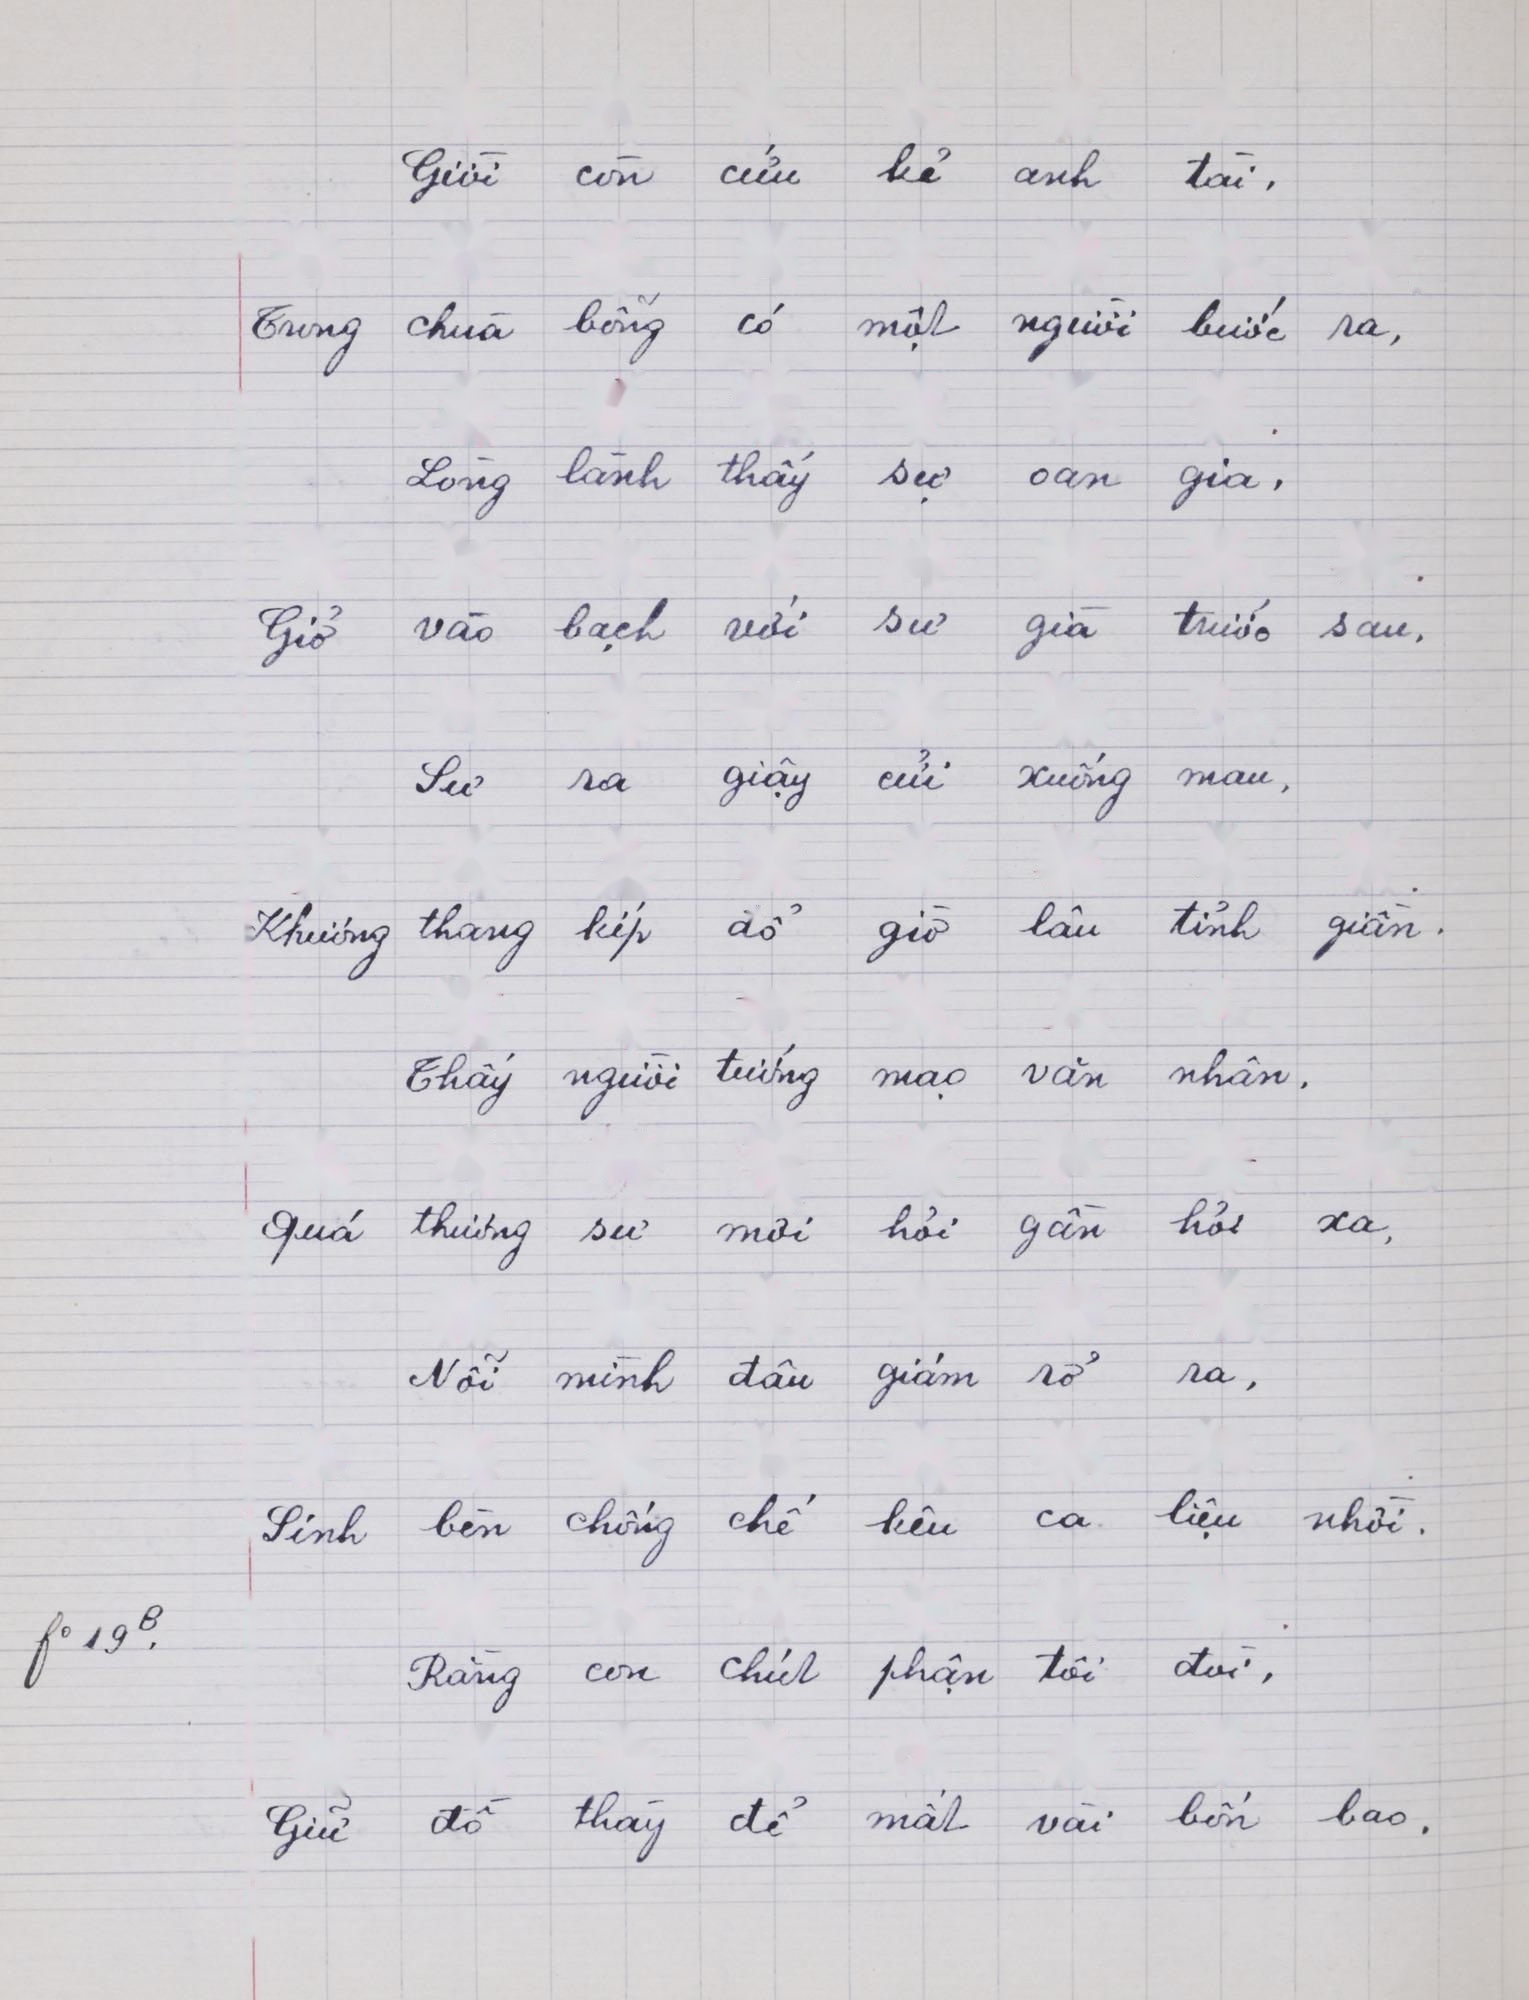 Giời còn cứu kẻ anh tài,
Trong chùa bỗng có một người bước ra,
Lòng lành thấy sự oan gia,
Giở vào bạch với sư già trước sau,
Sư ra giậy cửi xuống mau,
Khương thang kíp đổ giờ lâu tỉnh giần.
Thấy người tướng mạo văn nhân,
Quá thương sư mới hỏi gần hỏi xa,
Nỗi mình đâu giám rở ra,
Sinh bèn chống chế kêu ca liệu nhời.
fº 19ᴮ.
Rằng con chút phận tôi đòi,
Giữ đồ thày để mất vài bốn bao,